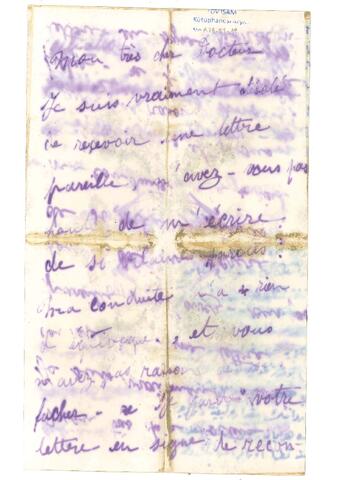 TÜSTAV
Kütüphanesi
Mon très cher Docteur
Je suis vraiment désolé
de recevoir une lettre
pareille, n'avez-vous pas
honte de m'écrire
de si vilaine
Ma conduite n'a rien
d'équivoque, et vous
n'avez pas raison de
fâcher. Je garde votre
lettre en signe de recon-